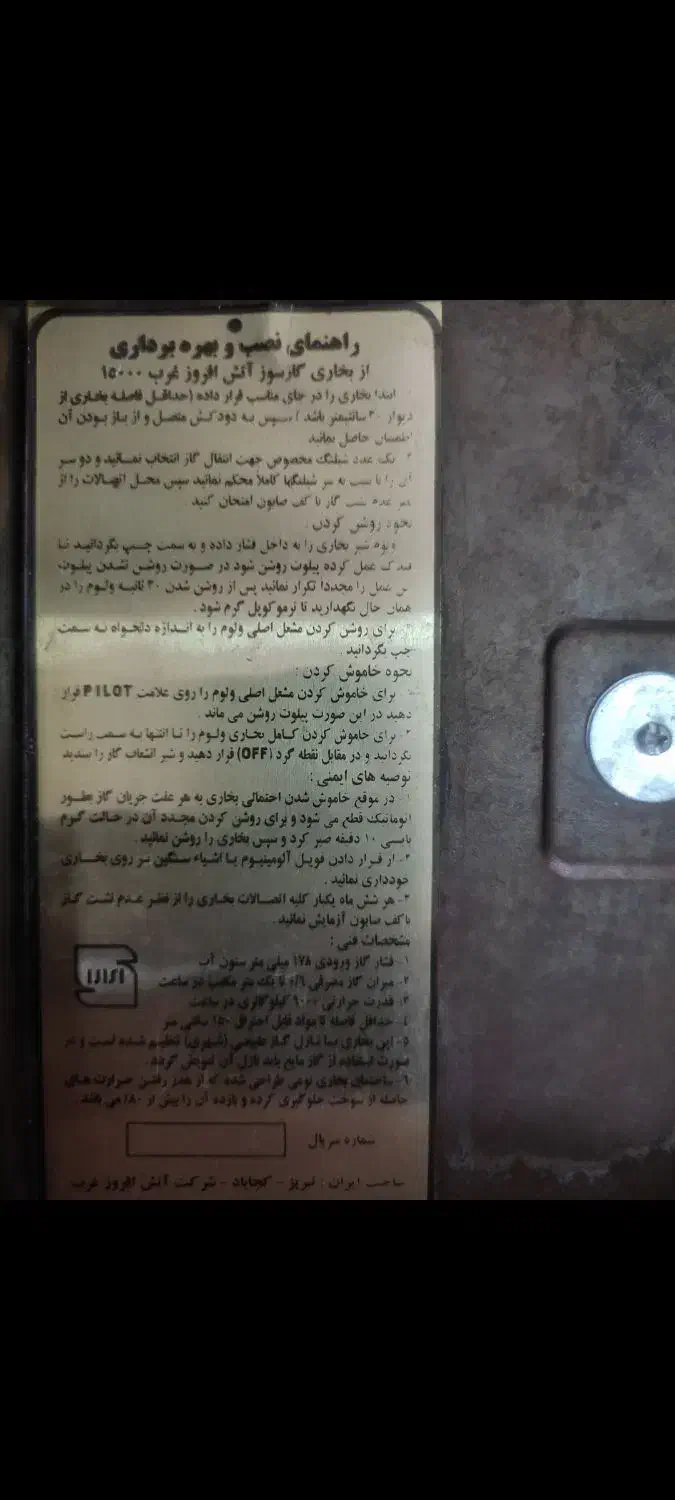 راهنمای نصب و بهره برداری
از بخاری گازسوز آتش افروز غرب ۱۵۰۰۰
ابتدا بخاری را در جای مناسب قرار داده (حداقل فاصله بخاری از
دیوار ۳۰ سانتیمتر باشد) سپس به دودکش متصل و از باز بودن آن
اطمینان حاصل نمائید
۲- یک عدد شیلنگ مخصوص جهت انتقال گاز انتخاب نمائید و دو سر
آن را با بست به سر شیلنگها کاملاً محکم نمائید سپس محل اتصالات را از
نظر عدم نشت گاز با کف صابون امتحان کنید
نحوه روشن کردن :
ولوم شیر بخاری را به داخل فشار داده و به سمت چپ بگردانید تا
فندک عمل کرده پیلوت روشن شود در صورت روشن نشدن پیلوت
این عمل را مجددا تکرار نمائید پس از روشن شدن ۳۰ ثانیه ولوم را در
همان حال نگهدارید تا ترموکوپل گرم شود .
۲- برای روشن کردن مشعل اصلی ولوم را به اندازه دلخواه به سمت
چپ بگردانید .
نحوه خاموش کردن :
۱- برای خاموش کردن مشعل اصلی ولوم را روی علامت PILOT قرار
دهید در این صورت پیلوت روشن می ماند .
۲- برای خاموش کردن کامل بخاری ولوم را تا انتها به سمت راست
بگردانید و در مقابل نقطه گرد (OFF) قرار دهید و شیر انشعاب گاز را ببندید
توصیه های ایمنی :
۱- در موقع خاموش شدن احتمالی بخاری به هر علت جریان گاز بطور
اتوماتیک قطع می شود و برای روشن کردن مجدد آن در حالت گرم
بایستی ۱۰ دقیقه صبر کرد و سپس بخاری را روشن نمائید .
۲- از قرار دادن فویل آلومینیوم یا اشیاء سنگین بر روی بخاری
خودداری نمائید .
۳- هر شش ماه یکبار کلیه اتصالات بخاری را از نظر عدم نشت گاز
با کف صابون آزمایش نمائید .
مشخصات فنی :
۱- فشار گاز ورودی ۱۷۸ میلی متر ستون آب
۲- میزان گاز مصرفی ۰/۶ تا یک متر مکعب در ساعت
۳- قدرت حرارتی ۹۰۰۰ کیلوکالری در ساعت
۴- حداقل فاصله تا مواد قابل احتراق ۱۵۰ سانتی متر
۵- این بخاری با نازل گاز طبیعی (شهری) تنظیم شده است و در
صورت استفاده از گاز مایع باید نازل آن تعویض گردد .
۶- ساختمان بخاری نوعی طراحی شده که از هدر رفتن حرارت های
حاصله از سوخت جلوگیری کرده و بازده آن را بیش از ۸۰٪ می باشد .
شماره سریال
ساخت ایران : تبریز - کجاباد - شرکت آتش افروز غرب